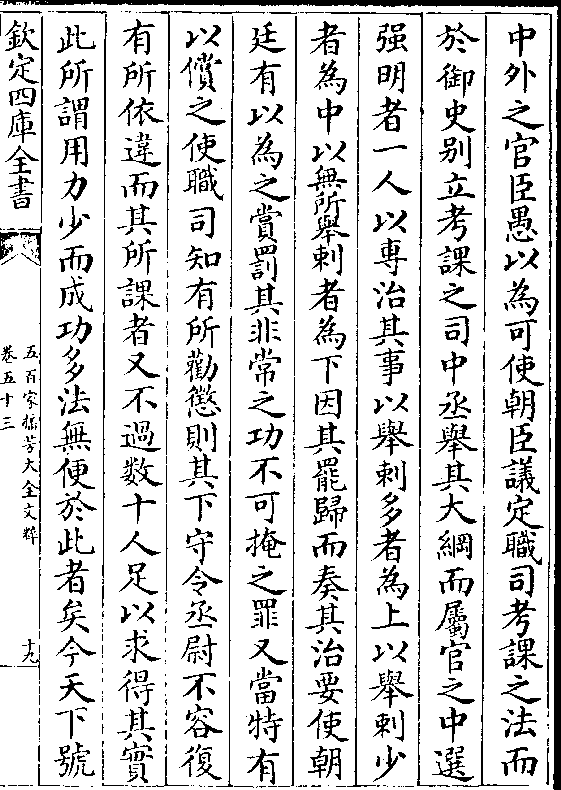 中外之官臣愚以為可使朝臣議定職司考課之法而
於御史别立考課之司中丞舉其大綱而屬官之中選
强明者一人以專治其事以舉刺多者為上以舉刺少
者為中以無所舉刺者為下因其罷歸而奏其治要使朝
廷有以為之賞罰其非常之功不可掩之罪又當特有
以償之使職司知有所勸懲則其下守令丞尉不容復
有所依違而其所課者又不過數十人足以求得其實
此所謂用力少而成功多法無便於此者矣今天下號
欽定四庫全書
五百家播芳大全文粹
卷五十三
十九